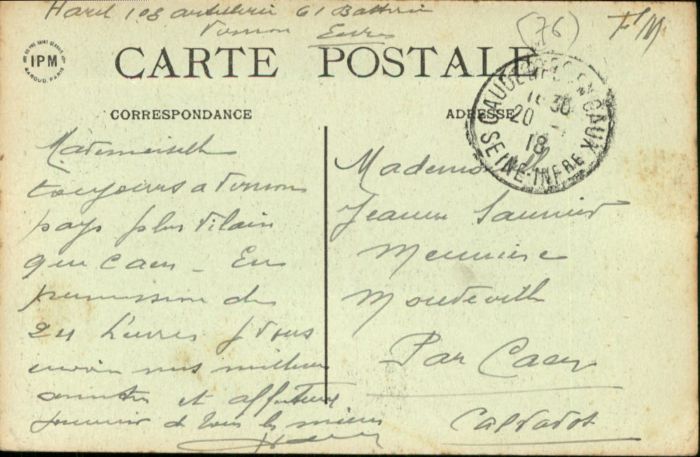 Harel 108 artillerie 61 Batterie
Vernon Eure
(76)
F M
IPM
CARTE POSTALE
CORRESPONDANCE
ADRESSE
CAUDEBEC-EN-CAUX
18 30
20
18
SEINE-INFRE
Mademoiselle
toujours a Vernon
pays plus vilain
que Caen - En
permission de
24 heures je vous
envoie mes meilleures
amitiés et affectueux
souvenir de tous les miens
Mademoi
Jeanne Saunier
Meunière
Mondeville
Par Caen
Calvados